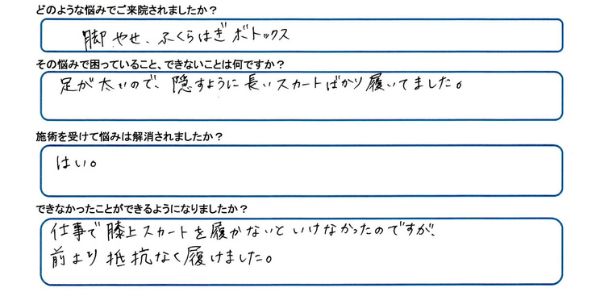 どのような悩みでご来院されましたか？
脚やせ、ふくらはぎボトックス
その悩みで困っていること、できないことは何ですか？
足が太いので、隠すように長いスカートばかり履いてました。
施術を受けて悩みは解消されましたか？
はい。
できなかったことができるようになりましたか？
仕事で膝上スカートを履かないといけなかったのですが、
前より抵抗なく履けました。